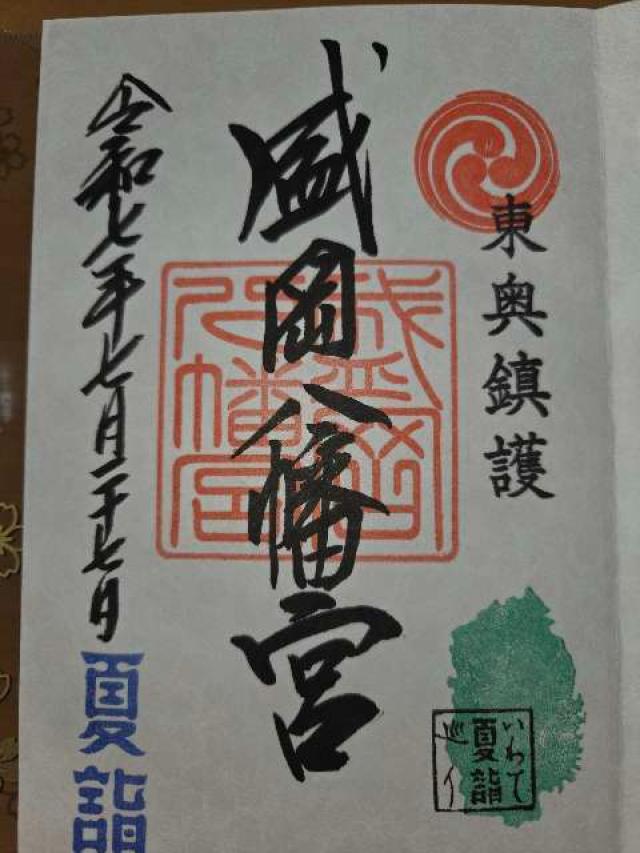 東奥鎮護
盛岡八幡宮
盛岡八幡宮
令和七年七月二十七日
夏詣
いわて
夏詣
巡り